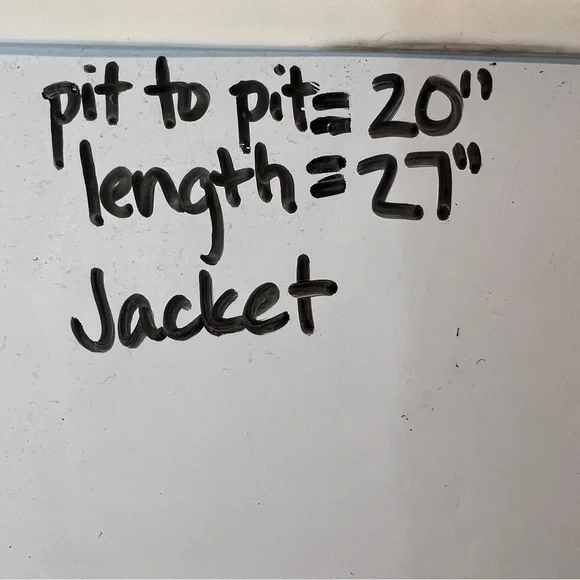 pit to pit = 20"
length = 27"
Jacket